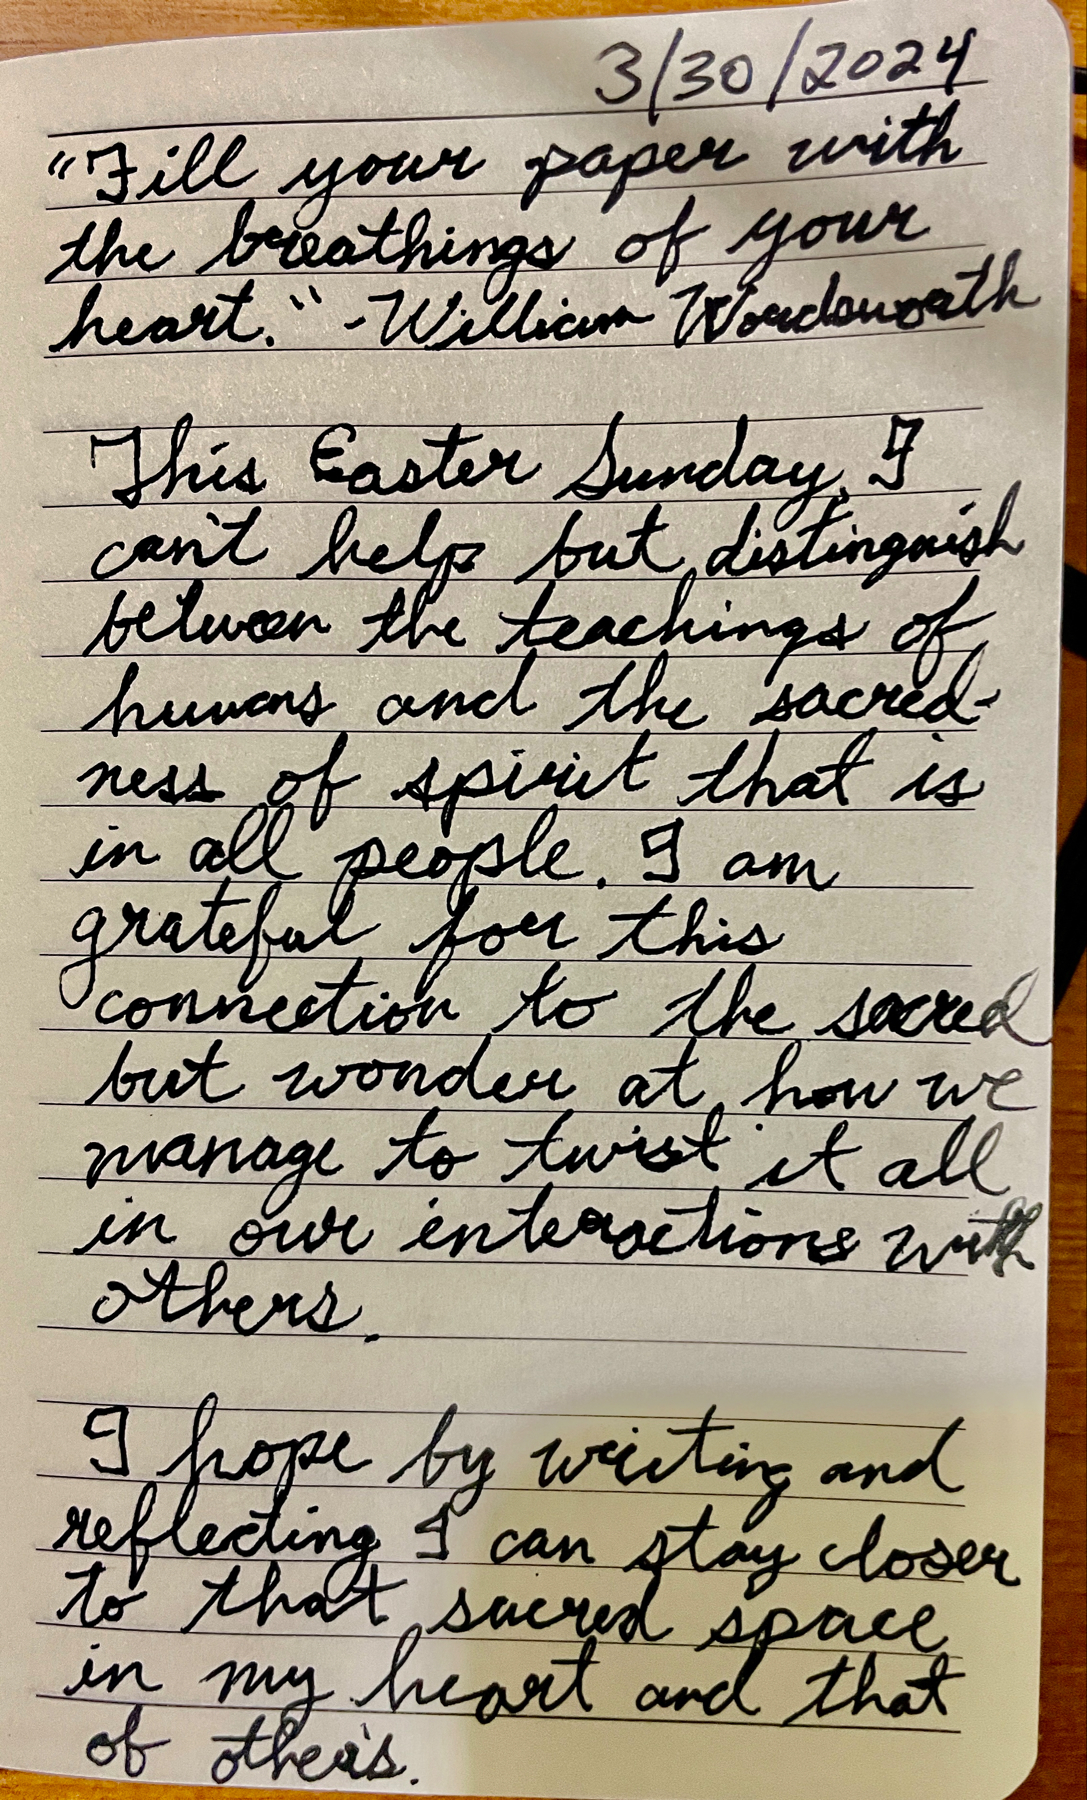 3/30/2024
"Fill your paper with
the breathings of your
heart." -William Wordsworth
This Easter Sunday, I
can't help but distinguish
between the teachings of
humans and the sacred-
ness of spirit that is
in all people. I am
grateful for this
connection to the sacred
but wonder at how we
manage to twist it all
in our interactions with
others.
I hope by writing and
reflecting I can stay closer
to that sacred space
in my heart and that
of others.